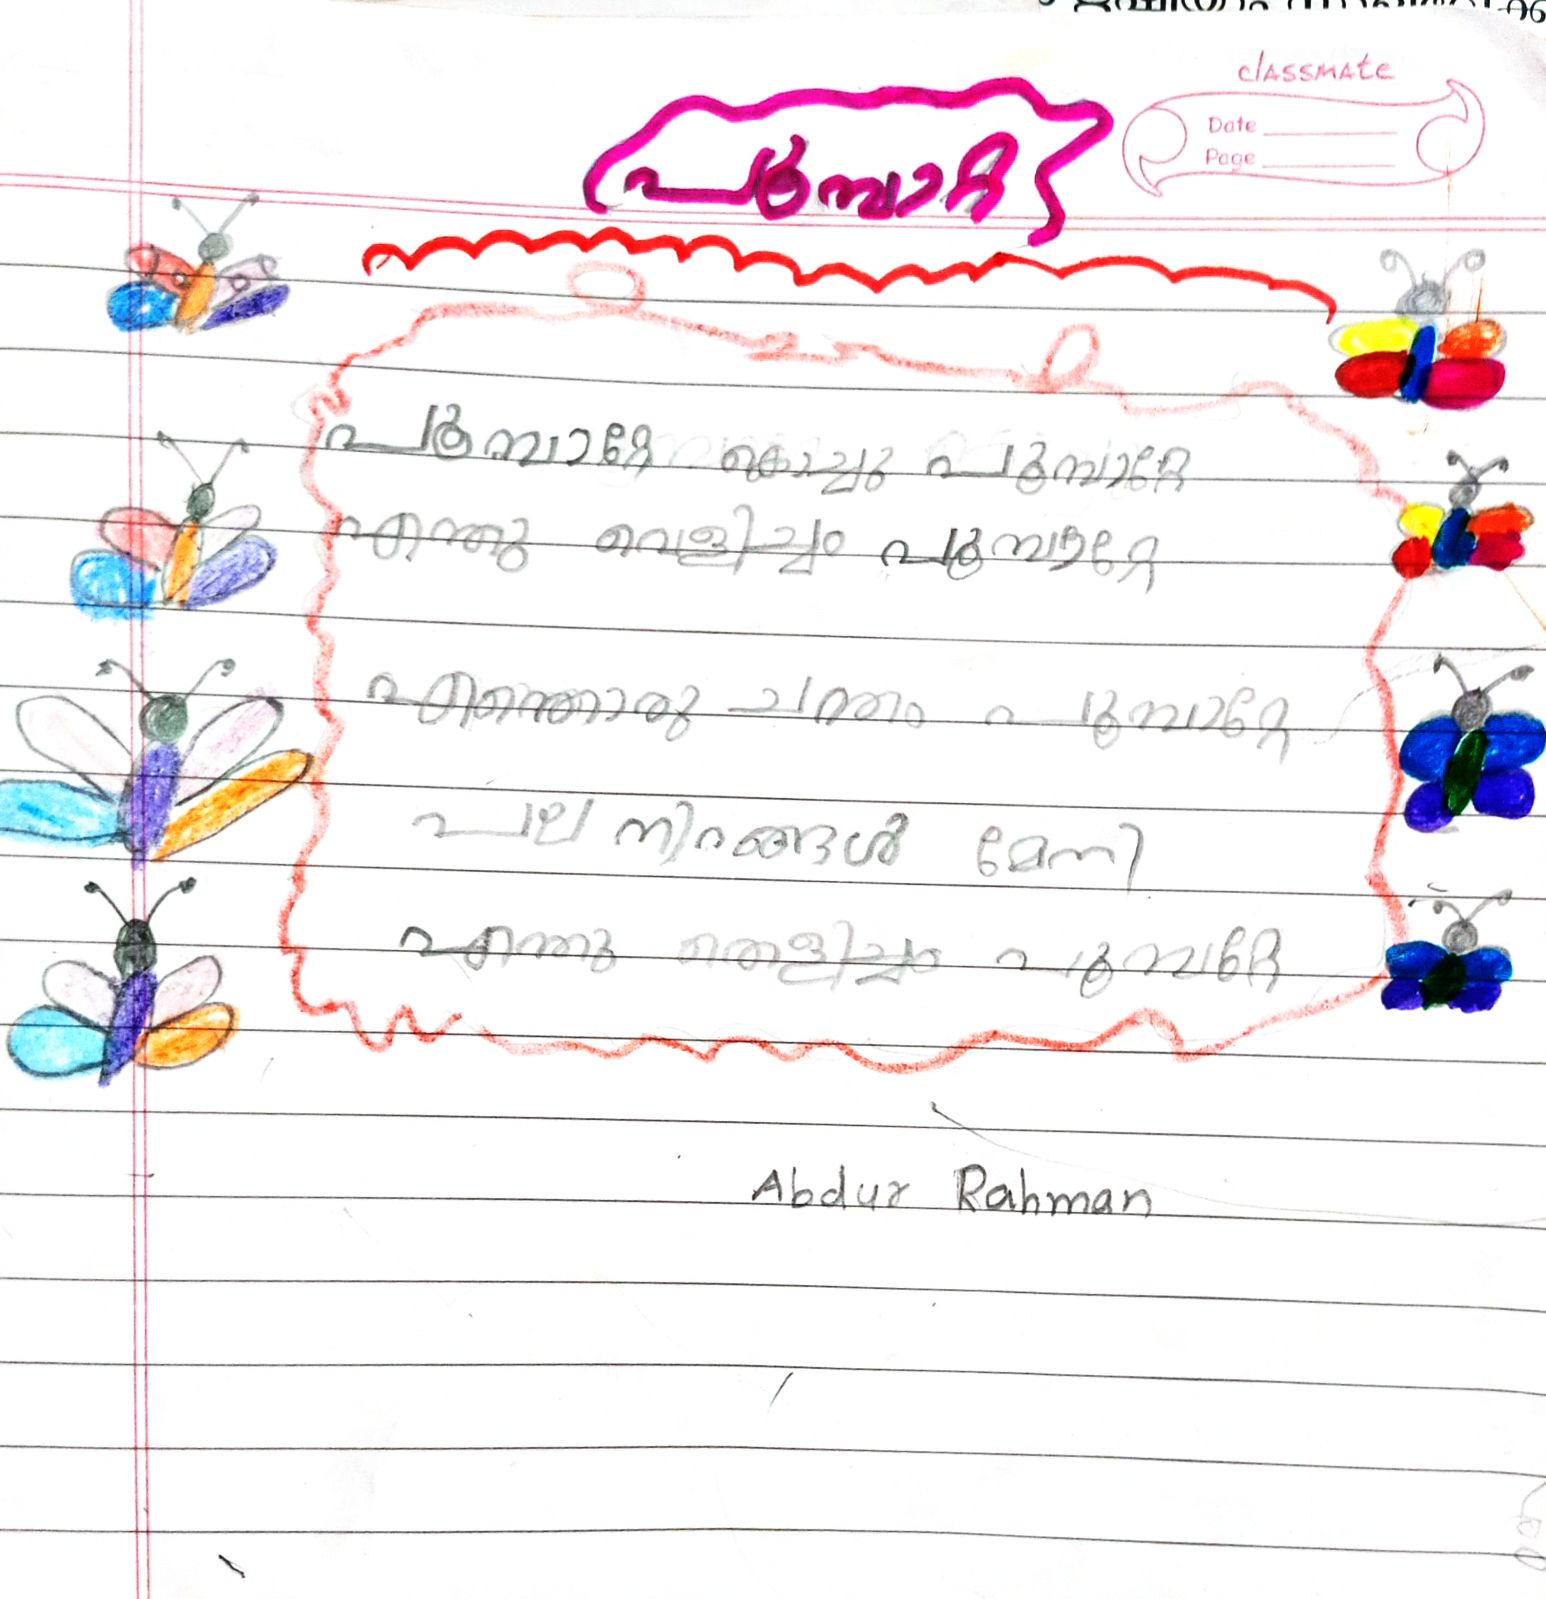 classmate
Date
Page
പൂമ്പാറ്റ
പൂമ്പാറ്റേ കൊച്ചു പൂമ്പാറ്റേ
എന്തു വെളിച്ചം പൂമ്പാറ്റേ
എന്തൊരു ചന്തം പൂമ്പാറ്റേ
പല നിറങ്ങൾ മേനി
എന്തു തെളിച്ചം പൂമ്പറ്റേ
Abdur Rahman